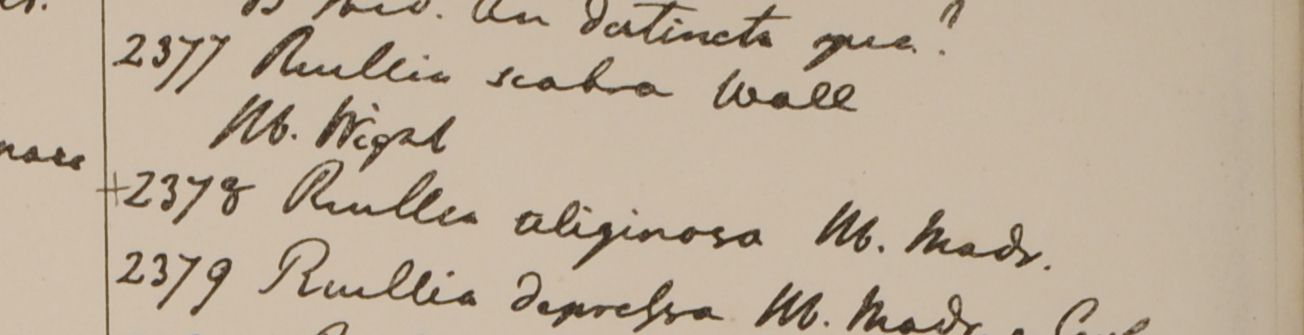 An distincta spec?
2377 Ruellia scabra Wall
Hb. Wight
+2378 Ruellia uliginosa Hb. Madr.
2379 Ruellia depressa Hb. Madr